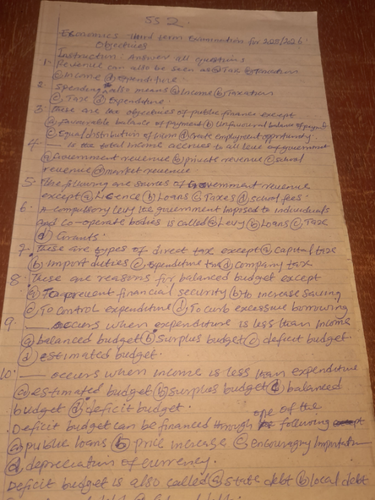 SS 2
Economics third term Examination for 2025/2026
Objectives
Instruction: Answer all questions
1. Revenue can also be seen as @ Tax
@ Income ⓓ Expenditure
2. Spending also means @ Income ⓑ Taxation
ⓒ Tax ⓓ Expenditure
3. These are the objectives of public finance except
@ favourable balance of payment ⓑ Unfavourable balance of payment
ⓒ Equal distribution of ⓓ State employment opportunity
4. — is the total income accrues to all level of government
@ government revenue ⓑ private revenue ⓒ school
revenue ⓓ market revenue
5. The following are sources of Government revenue
except @ licence ⓑ Loans ⓒ Taxes ⓓ school fees
6. A compulsory levy the government imposed to individuals
and co-operate bodies is called @ Levy ⓑ Loans ⓒ Tax
ⓓ Grants.
7. These are types of direct tax except @ capital tax
ⓑ import duties ⓒ expenditure tax ⓓ company tax.
8. These are reasons for balanced budget except
@ To prevent financial security ⓑ to increase saving
ⓒ To control expenditure ⓓ To curb excessive borrowing
9. — occurs when expenditure is less than income
@ balanced budget ⓑ Surplus budget ⓒ deficit budget
ⓓ estimated budget.
10. — occurs when income is less than expenditure
@ estimated budget ⓑ surplus budget ⓒ balanced
budget ⓓ deficit budget.
Deficit budget can be financed through one of the following except
@ public loans ⓑ price increase ⓒ Encouraging importation
ⓓ depreciation of currency.
Deficit budget is also called @ state debt ⓑ local debt